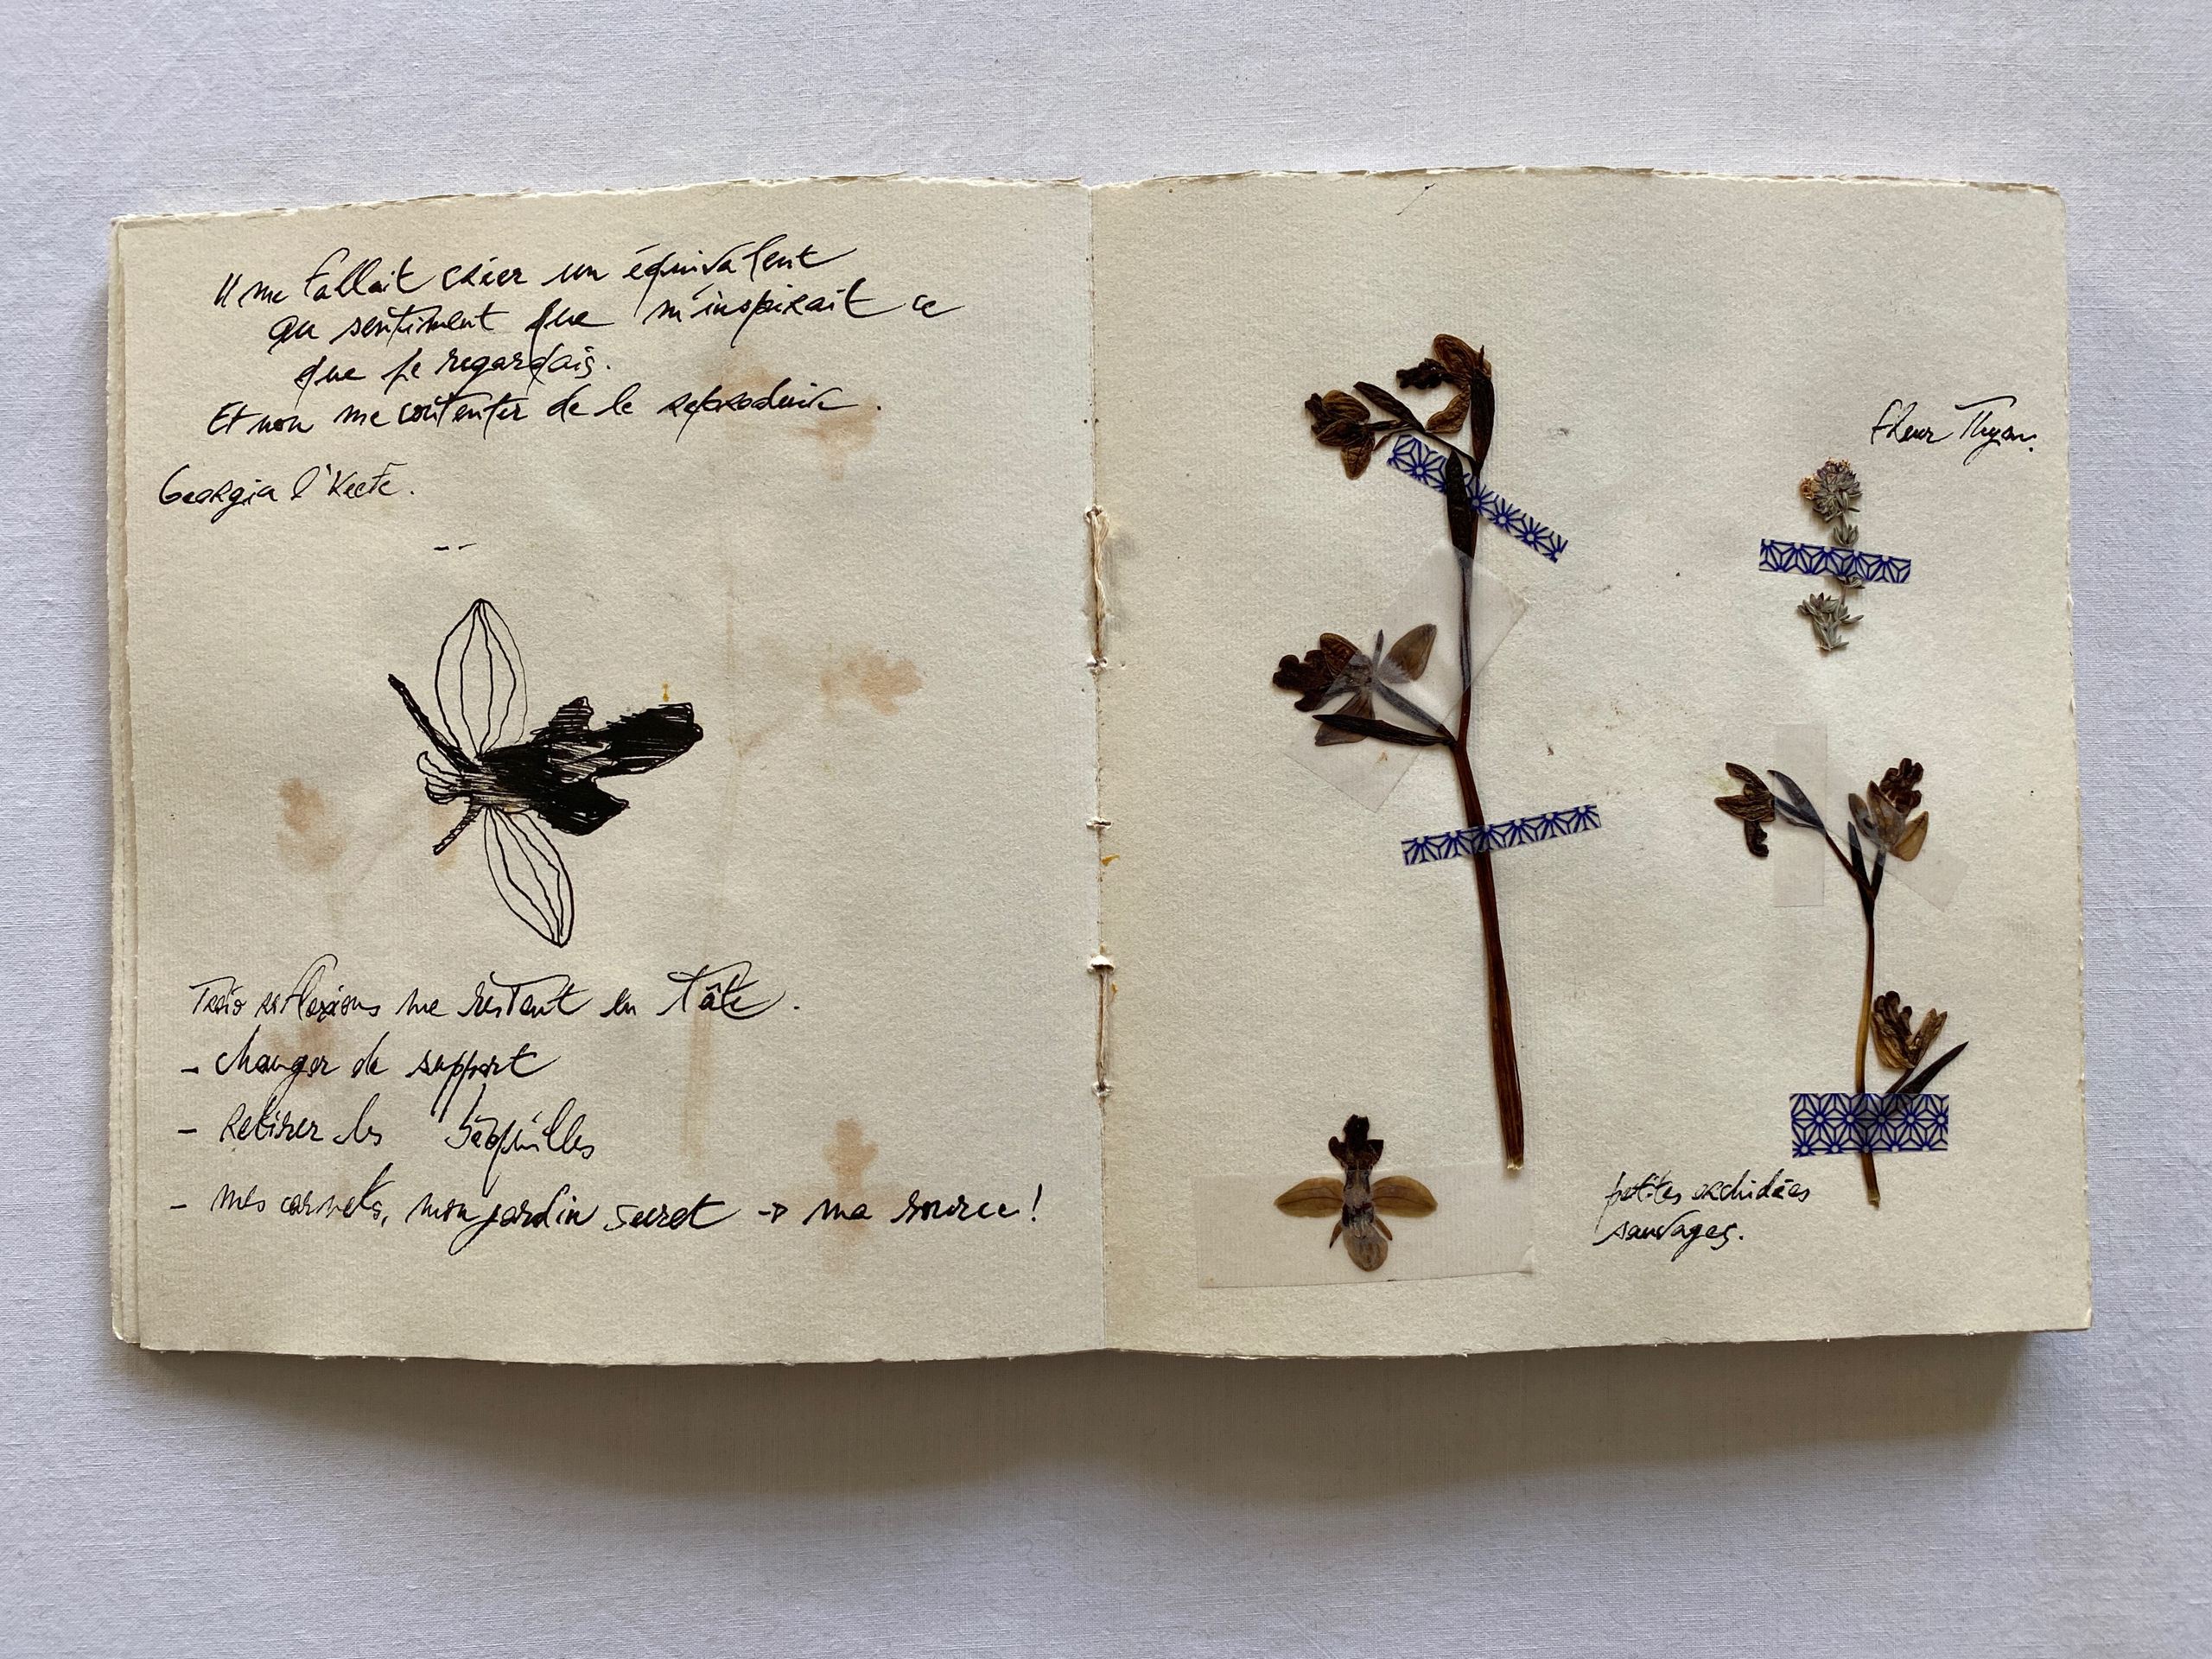 Il me fallait créer un équivalent
au sentiment que m'inspirait ce
que je regardais.
Et non me contenter de le reproduire.
Georgia O'Keefe.
Trois reflexions me restent en tâte.
- changer de support
- retirer les béquilles
- mes carnets, mon jardin secret → ma source!
fleur Thym.
petites orchidées
sauvages.